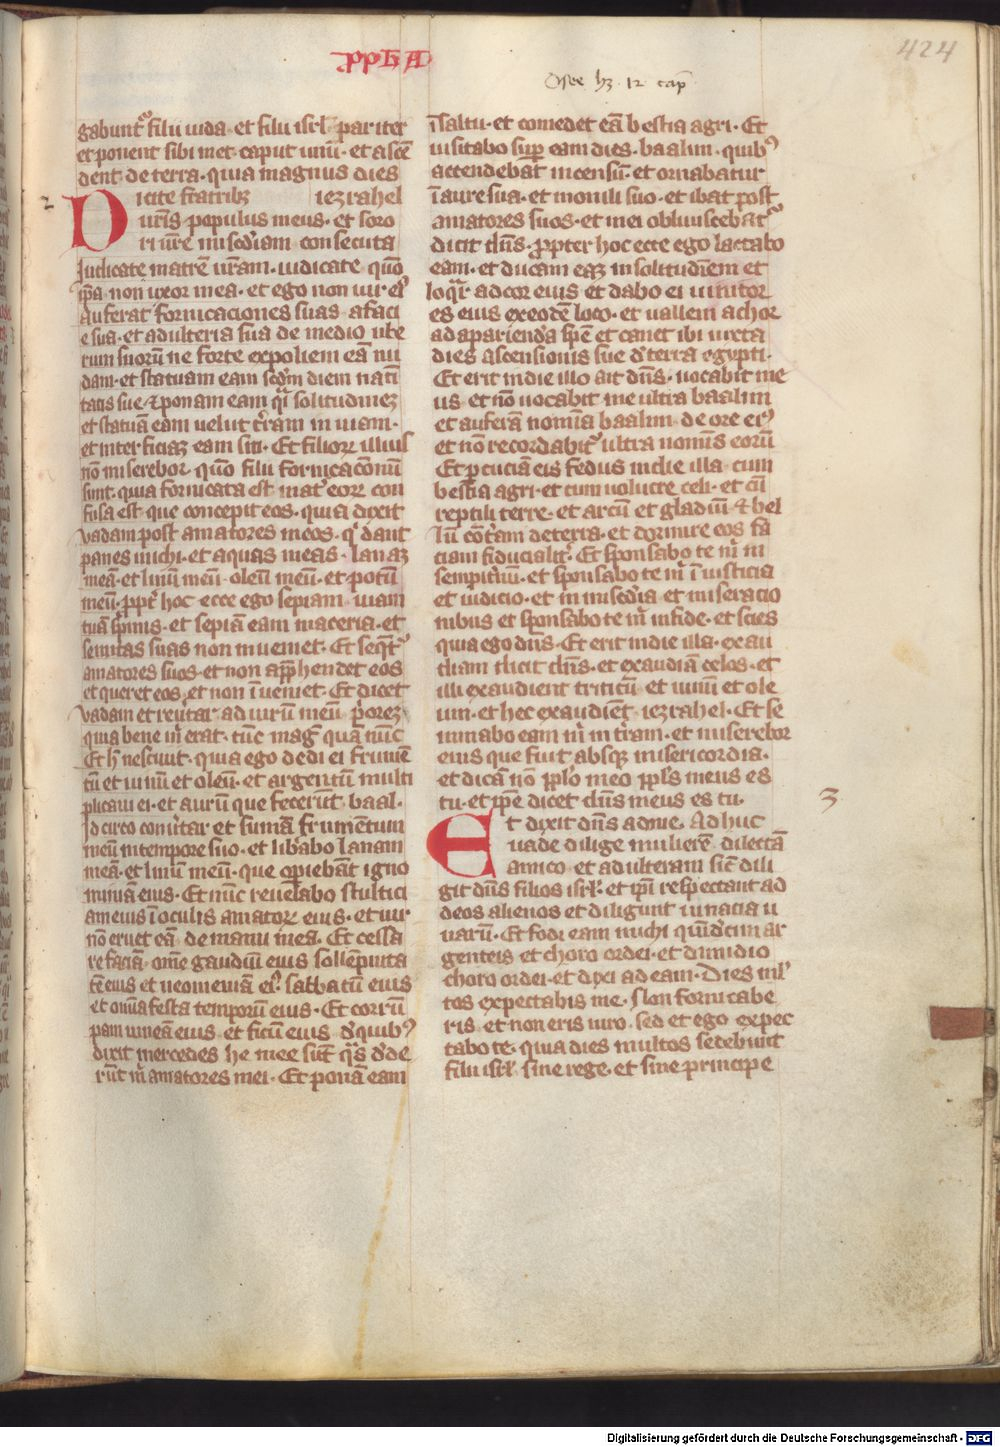 ppha
Osee hꝫ 12 cap̃
424
gabunt᷑ filii iuda et filii isrl᷑ pariter
et ponent sibimet caput unū et ascē
dent de terra quia magnus dies
2
Dicite fr̃atribꝫ iezrahel
ur̃is populus meus et soro
ri ur̃e misc̃diam consecuta
Iudicate matrē ur̃am iudicate qm̃
ip̃a non uxor mea et ego non uir ei᷒
auferat fornicaciones suas afaci
e sua et adulteria sua de medio ube
rum suoꝝ ne forte expoliem eā nu
dam et statuam eam scd̃m diem nati
tatis sue et ponam eam q̃i solitudineꝫ
et statuā eam velut tr̃am in uiam
et interficiaꝫ eam siti Et filioꝝ illius
nō miserebor qm̃ filii fornicacōnū
sunt quia fornicata est mat᷑ eoꝝ con
fusa est que concepit eos quia dixit
vadam post amatores meos q̇ dant
panes michi et aquas meas lanaꝫ
meā et linū meū oleū meū et potū
meū ꝓpt᷑ hoc ecce ego sepiam uiam
tuā spinis et sepiā eam maceria et
semitas suas non inueniet Et seqt᷑
amatores suos et non app̃hendet eos
et queret eos et non īueniet Et dicet
vadam et reũtar ad uirū meū p̃oreꝫ
quia bene m̃ erat tūc mag̃ quā nūc
Et h̃ nesciuit quia ego dedi ei frumē
tū et uinū et oleū et argentū multi
plicaui ei et aurū que fecerūt baal
Idcirco conũtar et sumā frumentum
meū in tempore suo et lib̃abo lanam
meā et linū meū que operiebāt igno
miniā eius Et nūc reuelabo stultici
am eius ī oculis amatoꝝ eius et uir
nō eruet eā de manu mea Et cessa
re faciā om̃e gaudiū eius sollēpnita
tē eius et neomeniā ei᷒ sabbatū eius
et om̃ia festa temporum eius Et corrū
pam uineā eius et ficū eius d̃ quib᷒
dixit mercedes he mee sūt q̃s d̃de
rūt m̃ amatores mei Et ponā eam
ī saltū et comedet eā bestia agri Et
uisitabo sup̃ eam dies baalim quib᷒
accendebat incensū et ornabatur
ī aure sua et monili suo et ibat post
amatores suos et mei obliuiscebat᷑
dicit dn̄s ꝓpter hoc ecce ego lactabo
eam et ducam eaꝫ in solitudinem et
loqr᷑ ad cor eius et dabo ei uinitor
es eius ex eodē loco et uallem achor
ad apariend̃a spē et canet ibi iuxta
dies ascensionis sue d̃ terra egypti
Et erit in die illo ait dn̄s uocabit me
us et nō uocabit me ultra baalim
et auferā nomīa baalim de ore ei᷒
et nō recordabit᷑ ultra nominis eorū
Et ꝑcutiā eis fedus in die illa cum
bestia agri et cum uolucre celi et cū
reptili terre et arcū et gladiū et bel
lū cōt̃am de terra et dormire eos fa
ciam fiducialit᷑ Et sponsabo te m̃ in
sempit̃nū et sponsabo te m̃ ī iusticia
et iudicio et in misc̃dia et miseracio
nibus et sponsabo te m̃ in fide et scies
quia ego dn̄s Et erit in die illa exau
diam dicit dn̄s et exaudiā celos et
illi exaudient triticū et uinū et ole
um et hec exaudient iezrahel Et se
minabo eam m̃ in tr̃am et miserebor
eius que fuit absqꝫ misericordia
et dicā nō pplo meo ppls meus es
tu et ip̃e dicet dn̄s meus es tu
3
Et dixit dn̄s ad me Adhuc
uade dilige mulierē dilectā
amico et adulteram sic̄ dili
git dn̄s filios isrl᷑ et ip̃i respectant ad
deos alienos et diligunt uinacia u
uarū Et fodi eam michi quīd̃cim ar
genteis et choro ordei et dimidio
choro ordei et dixi ad eam Dies ml᷑
tos expectabis me Non fornicabe
ris et non eris uiro sed et ego expec
tabo te quia dies multos sedebunt
filii isrl᷑ sine rege et sine principe
Digitalisierung gefördert durch die Deutsche Forschungsgemeinschaft - DFG